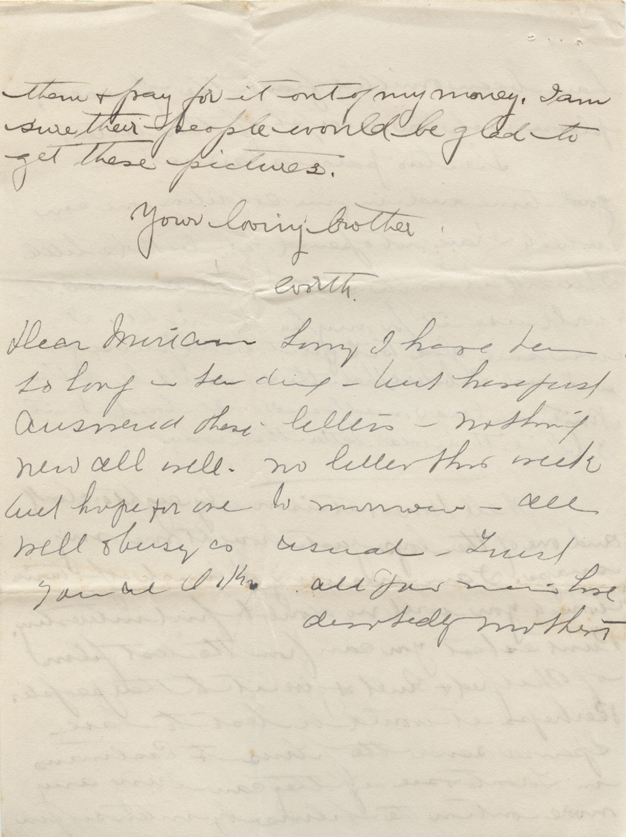 them & pay for it out of my money. I am
sure their people would be glad to
get these pictures.
Your loving brother
Worth.
Dear Miriam Sorry I have been
so long in sending - but have just
answered these letters - nothing
new all well. no letter this week
but hope for one to morrow - all
well & busy as usual - Trust
you all O.K. all join me in love
devotedly Mother